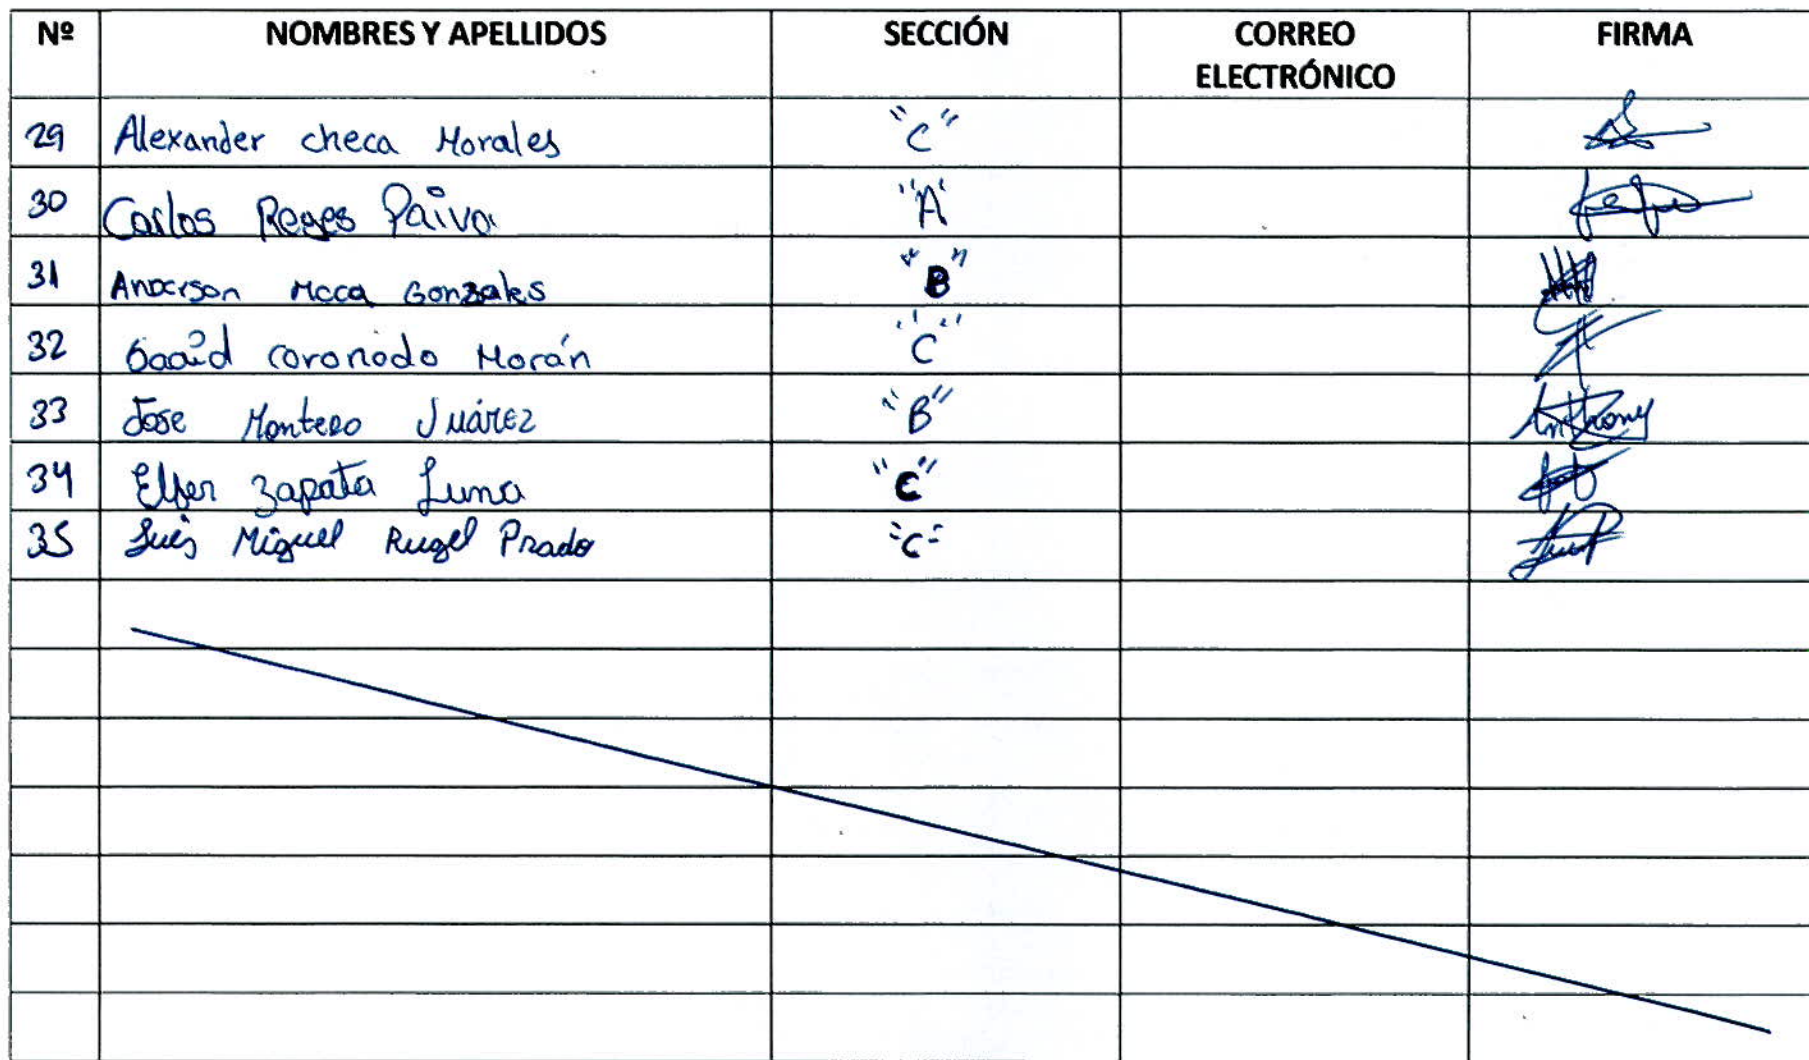 Nº NOMBRES Y APELLIDOS SECCIÓN CORREO ELECTRÓNICO FIRMA
29 Alexander checa Morales "C"
30 Carlos Reyes Paiva "A"
31 Anderson Meca Gonzales "B"
32 David coronado Morán "C"
33 Jose Montero Juárez "B" Anthony
34 Elfer Zapata Luna "C"
35 Luis Miguel Rugel Prado "C"